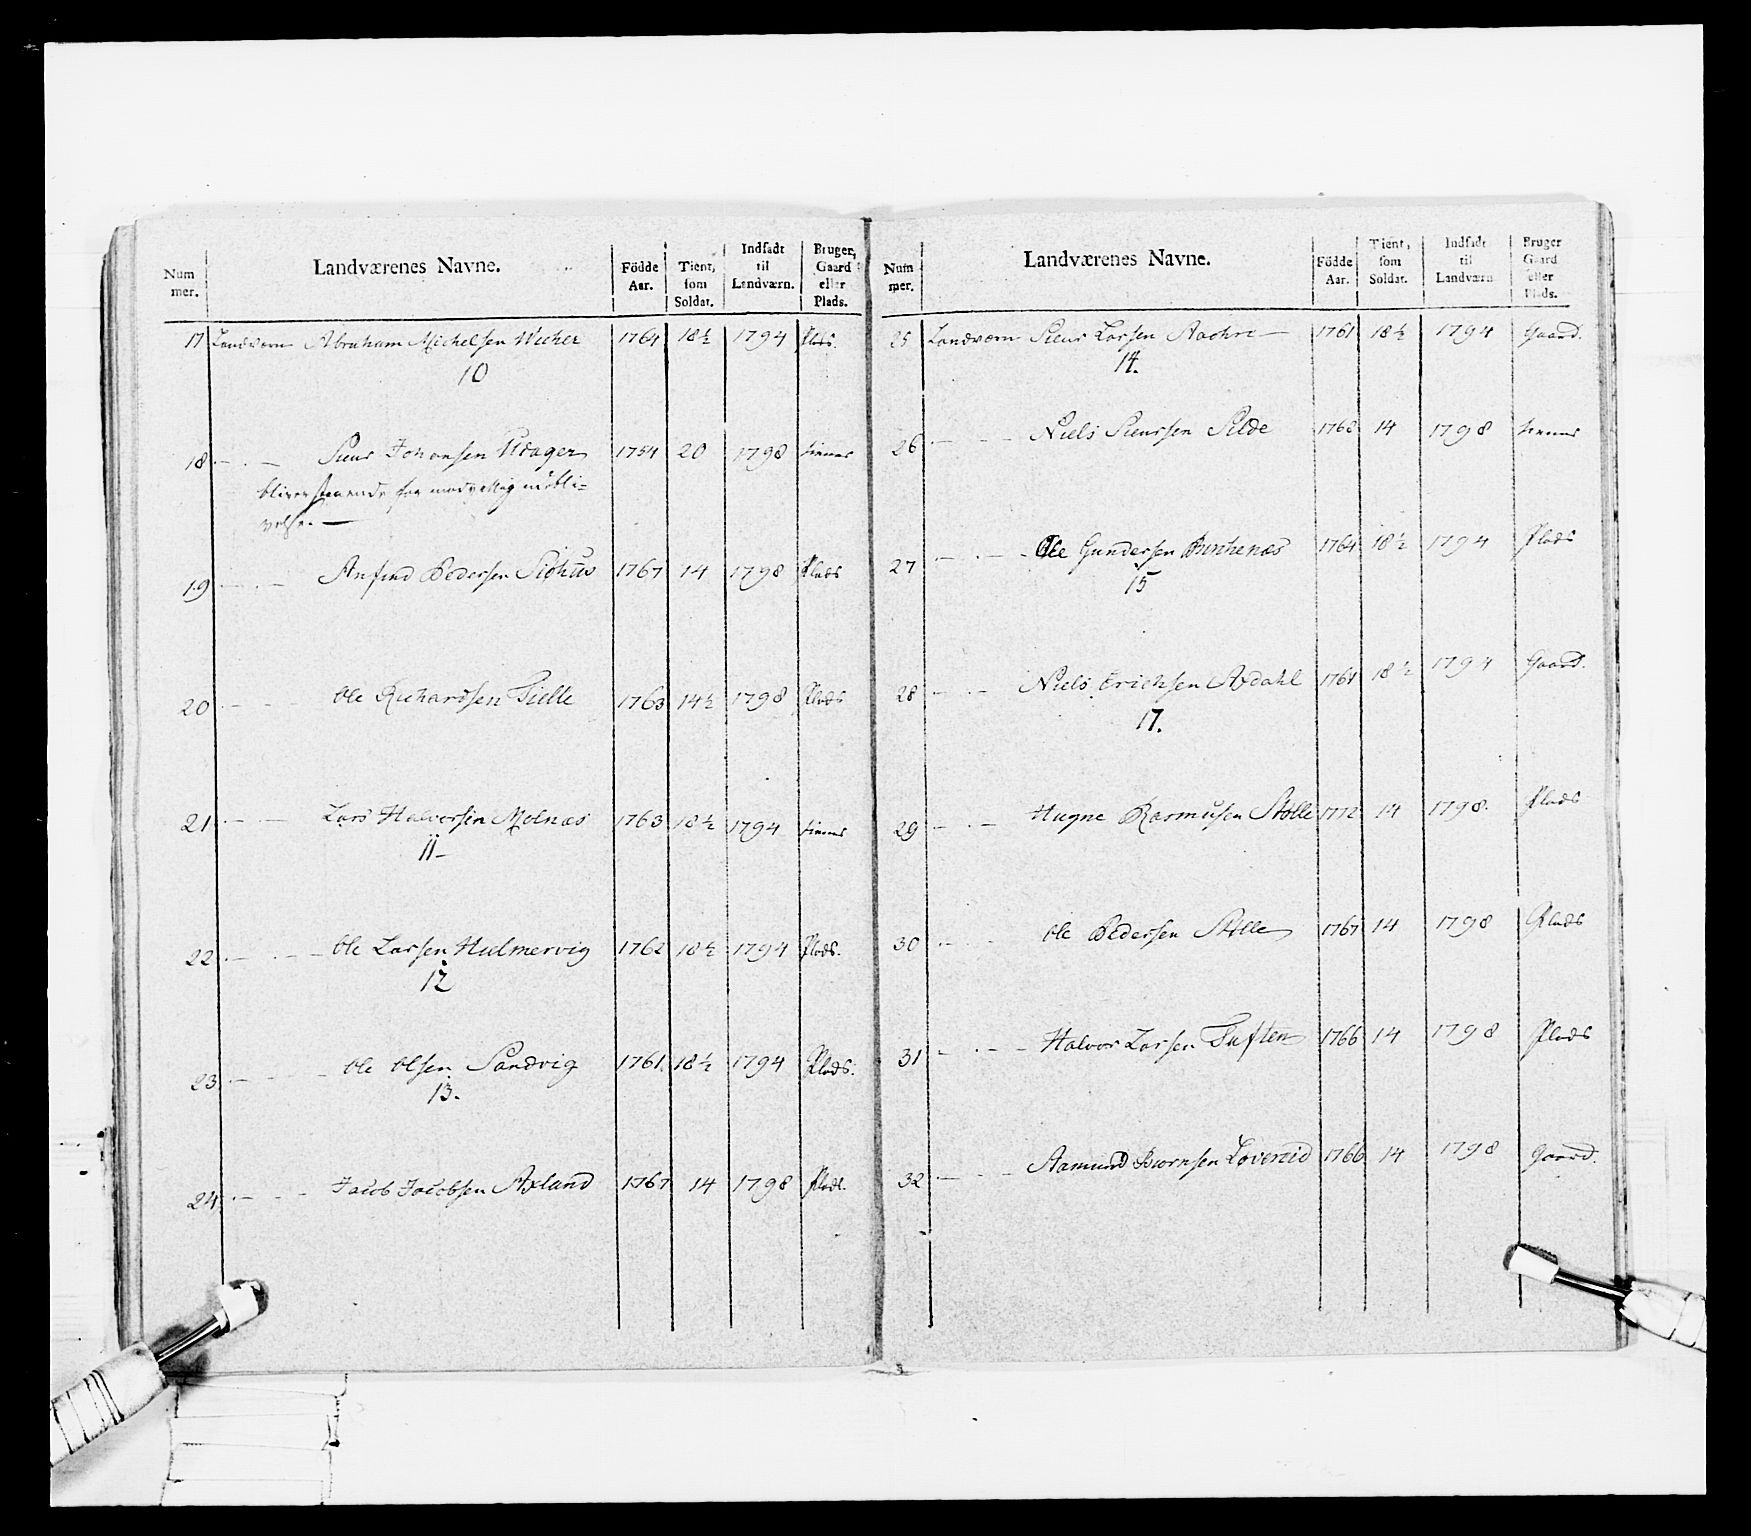 Num mer. Landværenes Navne. Födde Aar. Tient, som Soldat. Indsadt til Landværn. Bruger, Gaard eller Plads.
17 Landværn Abraham Michelsen 1764 18½ 1794 Plads.
10
18 Siur Johansen 1754 20 1798
bliver staaende for
19 Anfind Pedersen Sidhus 1767 14 1798 Plads
20 Ole Richardsen Tielle 1763 14½ 1798 Plads
21 Lars Halvorsen Molnæs 1763 18½ 1794
11
22 Ole Larsen Hulmervig 1762 18½ 1794 Plads.
12
23 Ole Olsen Sandvig 1761. 18½ 1794 Plads.
13.
24 Jacob Jacobsen Axland 1767 14 1798 Plads.
Num mer. Landværenes Navne. Födde Aar. Tient, som Soldat. Indsadt til Landværn Bruger Gaard eller Plads.
25 Landværn Siur Larsen 1761 18½ 1794 Gaard.
14.
26 Niels Siursen Silde 1768 14 1798
27 Ole Gundersen 1764 18½ 1794 Plads
15
28 Niels Erichsen Axdahl 1761 18½ 1794 Gaard.
17.
29 Hugne Rasmusen Stolle 1772 14 1798. Plads
30 Ole Pedersen Stolle 1767 14 1798 Plads
31 Halvor Larsen Tuften 1766 14 1798 Plads
32 Aamund Biørnsen 1766 14 1798 Gaard.